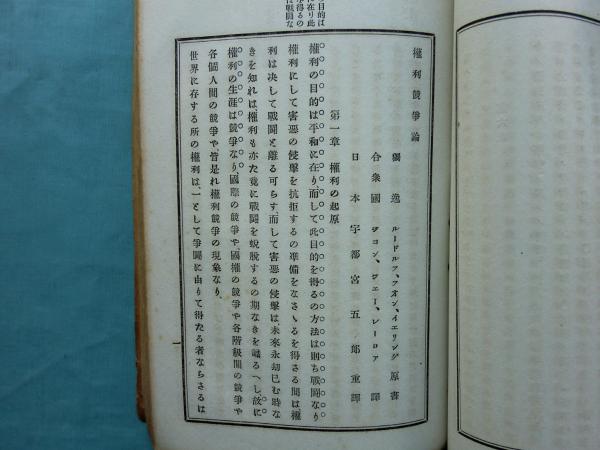 目的は
に在り此
を得るの
は戰鬪な
權利競爭論
獨逸 ルードルフ、フオン、イエリング 原書
合衆國 ヂヨン、ヂエー、レーロア 譯
日本 宇都宮五郎 重譯
第一章 權利の起原
權利の目的は平和に在り、而して此目的を得るの方法は則ち戰鬪なり
權利にして害惡の侵擊を抗拒するの準備をなさゝるを得さる間は、權
利は决して戰鬪と離る可らす、而して害惡の侵擊は未來永劫已む時な
きを知れは、權利も亦た竟に戰鬪を蛻脫するの期なきを識るへし、故に
權利の生涯は競爭なり、國際の競爭や、國權の競爭や各階級間の競爭や
各個人間の競爭や、皆是れ權利競爭の現象なり、
世界に存する所の權利は、一として爭鬪に由りて得たる者ならさるは